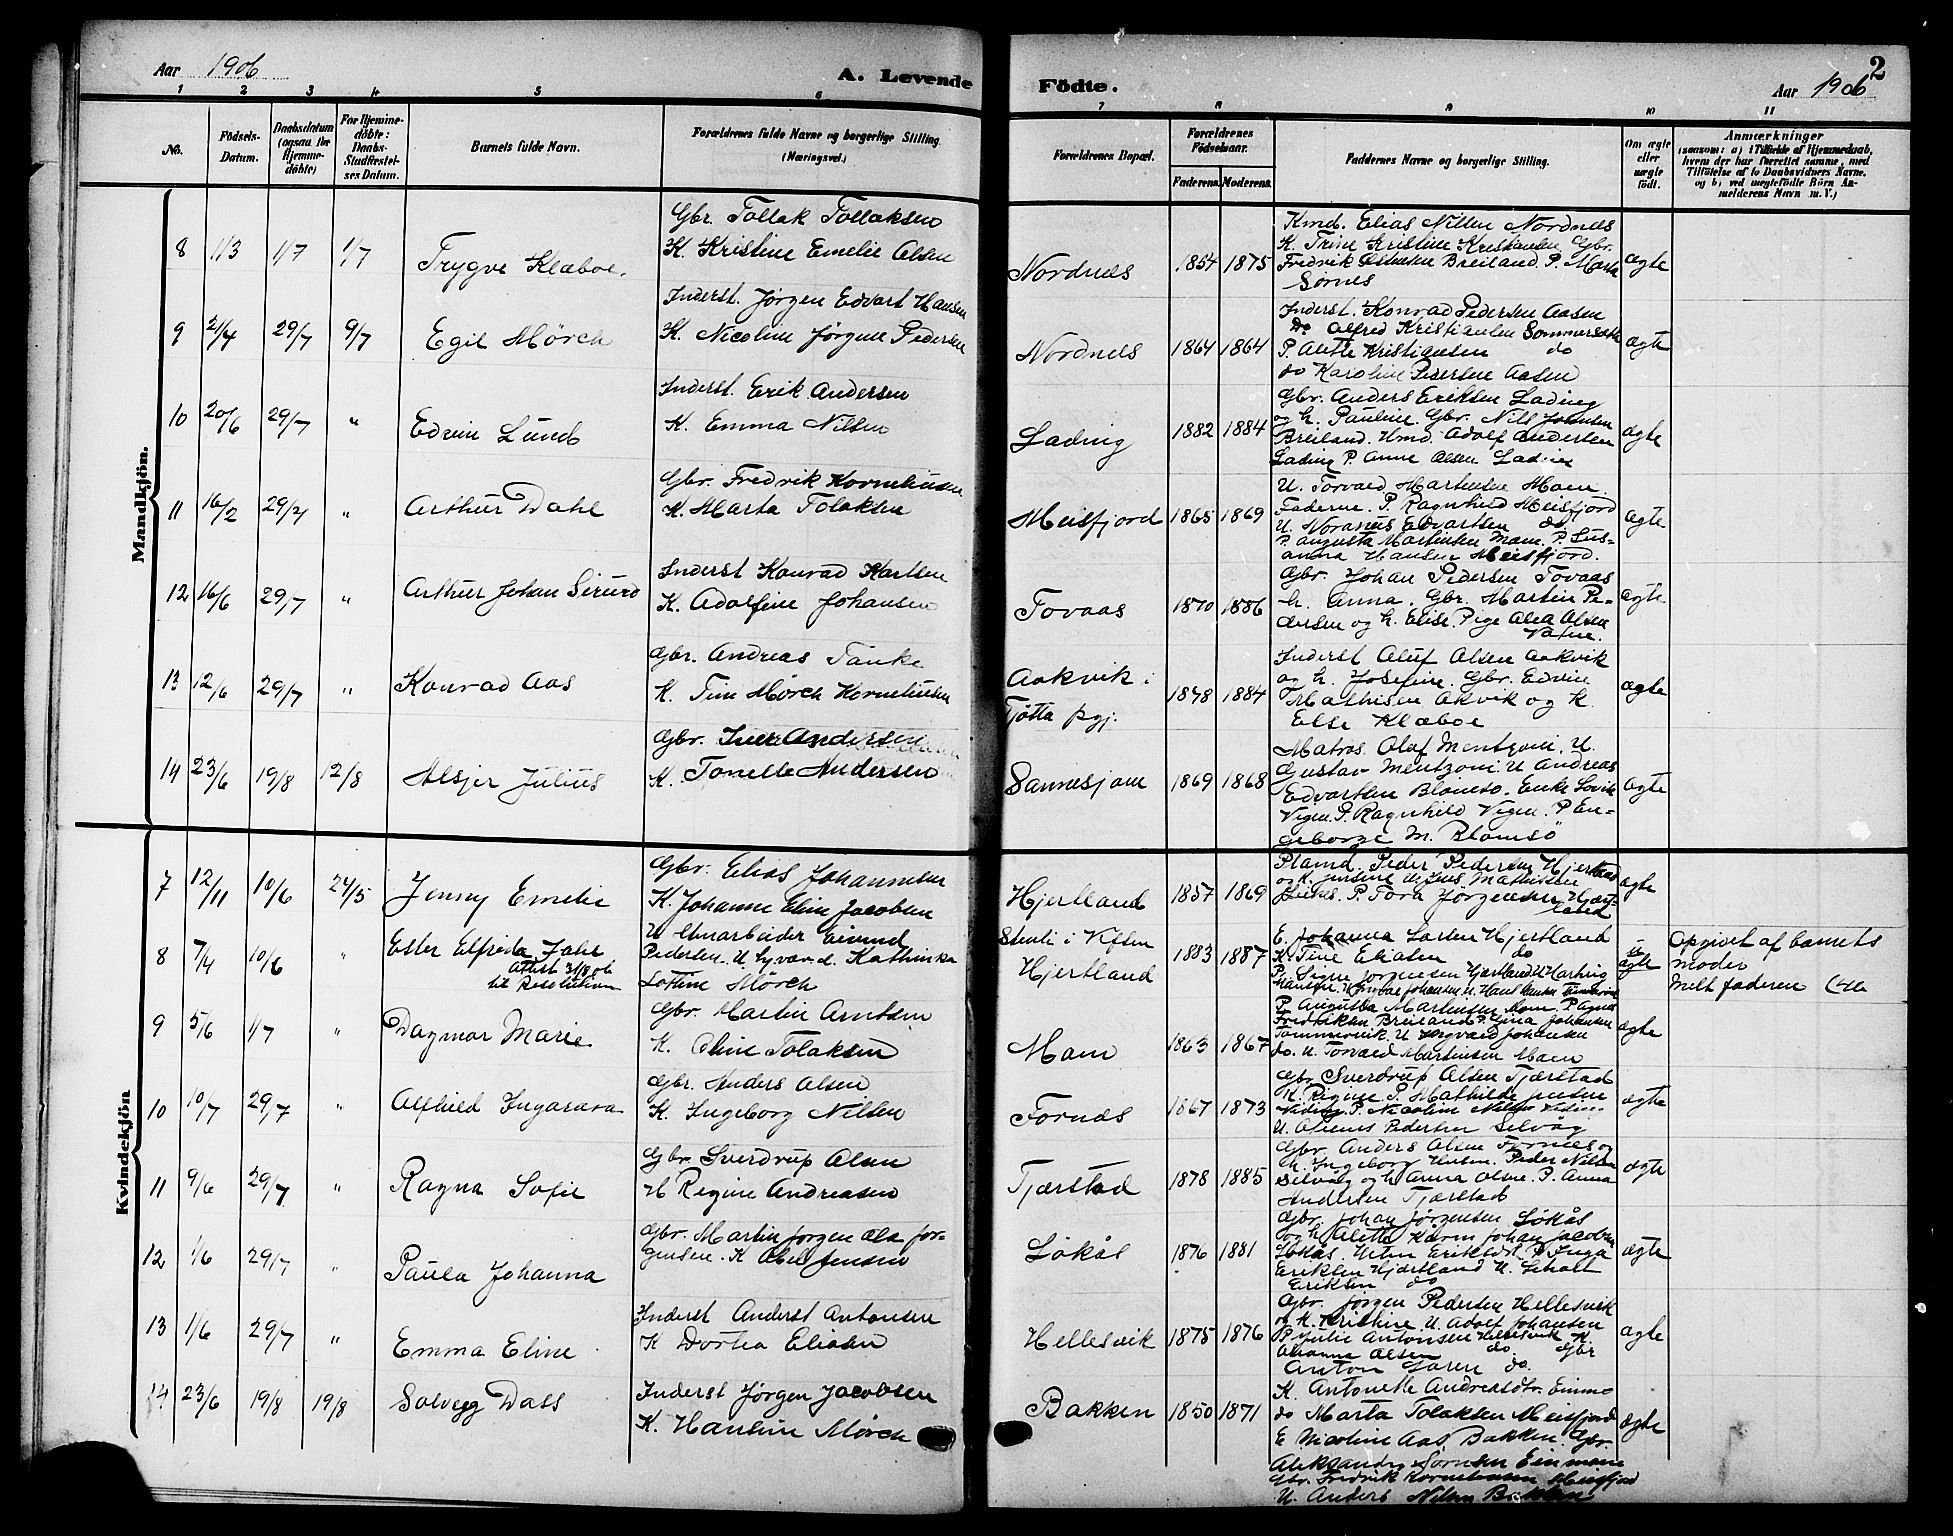 Aar 1906
A. Levende
Födte.
Aar 1906
2
1 2 3 4 5 6 7 8 9 10 11
No.
Födsels-
Datum.
Daabsdatum
(ogsaa for
Hjemme-
döbte)
For Hjemme-
döbte:
Daabs-
Stadfæstel-
ses Datum.
Barnets fulde Navn.
Forældrenes fulde Navne og borgerlige Stilling
(Næringsvei.)
Forældrenes Bopæl.
Forældrenes
Födselsaar.
Faderens. Moderens.
Faddernes Navne og borgerlige Stilling.
Om ægte
eller
uægte
födt.
Anmærkninger
(saasom: a) i Tilfælde af Hjemmedaab,
hvem der har forrettet samme, med
Tilföielse af to Daabsvidners Navne,
og b) ved uægtefödte Börn An-
melderens Navn m. V.)
Mandkjön.
8 1/3 1/7 1/7 Trygve Klæboe.
Gbr. Tollak Tollaksen
K. Kristine Emelie Olsen
Nordnes 1854 1875
Kmd. Elias Nilsen Nordnes
K. Trine Kristine Kristiansen Gbr.
Fredrik Breiland. P. Marta
Sörnes
ægte
9 21/4 29/7 9/7 Egil Mörch
Inderst. Jørgen Edvart Hansen
K. Nicoline Jørgine Pedersen
Nordnes 1864 1864
Inderst. Konrad Pedersen Aasen
do Alfred Kristiansen
P. Alette Kristiansen do
do Karoline Pedersen Aasen
ægte
10 20/6 29/7 " Edvin Lund
Inderst. Erik Andersen
K. Emma Nilsen
Lading 1882 1884
Gbr. Anders Eriksen Lading
og h. Pauline. Gbr. Nils Johnsen
Breiland. Hmd. Adolf Andersen
Lading P. Anne Olsen Lading
ægte
11 16/2 29/4 " Arthur Dahl
Gbr. Fredrik Korneliusen
K. Marta Tolaksen
Meisfjord 1865 1869
U. Torvald Martinsen Mom
Faderne. P. Ragnhild Meisfjord
U. Edvartsen do
P. Augusta Martinsen Mom. P. Sus-
anna Hansen Meisfjord.
ægte
12 16/6 29/7 " Arthur Johan Sivurd
Inderst Konrad Karlsen
K. Adolfine Johansen
Tovaas 1870 1886
Gbr. Johan Pedersen Tovaas
h. Anna. Gbr. Martin Pe-
dersen og h. Elise. Pige Olea Olsen
ægte
13 12/6 29/7 " Konrad Aas
Gbr. Andreas Tanke
K. Tine Mörch Korneliusen
Aakvik i
Tjøtta pgj.
1878 1884
Inderst Oluf Olsen Aakvik
og h. Josefine. Gbr. Edvin
Mathisen Akvik og K.
Else Klæboe
ægte
14 23/6 19/8 12/8 Alsjer Julius
Gbr. Andersen
K. Tonelle Andersen
Sannesjøen 1869 1868
Matros Olaf Mentzoni. U.
Gustav Mentzoni. U Andreas
Edvartsen Blomsö. Enke Lovik
Vegen. P. Ragnhild Vegen. P En-
geborge M. Blomsö
ægte
Kvindekjön
7 12/11 10/6 24/5 Jenny Emelie
Gbr. Elias Johannesen
K. Johanne Eline Jacobsen
Hjertland 1857 1869
Plamd. Peder Pedersen Hjertland
og K. Jensine U. Jens Mathisen
P. Tora Jørgensen Hjert-
land
ægte
8 7/4 10/6 " Ester Elfrida Jahr
Attest 31/8 06
til Resolution
U Elvarbeider Eivind
Pedersen. U Kathinka
Lofine Mörch
i Vefsn
Hjertland
1883 1887
E. Johanna Larsen Hjertland
K. Tine Eliasen do
P. Signe Jørgensen Hjertland U. Hartvig
Hansen.
uægte
Opgivet af barnets
moder
Melt faderen
9 5/6 1/7 " Dagmar Marie
Gbr. Martin Arntsen
K. Oline Tolaksen
Mom 1863 1867
P. Augusta Martinsen Mom. P Agnes
Fredriksen Breiland P. Gina Johansen
Tömmervik U Johansen
do. U. Torvald Martinsen Mom
ægte
10 10/7 29/7 " Alfhild Ingavara
Gbr. Anders Olsen
K. Ingeborg Nilsen
Fornes 1867 1873
Gbr Sverdrup Olsen Tjærstad
K. Regine P. Mathilde Jensen
P. Nicoline Nilsen
U. Pedersen Selvåg
ægte
11 9/6 29/7 " Ragna Sofie
Gbr Sverdrup Olsen
H Regine Andreasen
Tjærstad 1878 1885
Gbr. Anders Olsen Fornes og
h. Ingeborg Peder Nilsen
Selvåg og h Anna Olsen. P. Anna
Andersen Tjærstad
ægte
12 1/6 29/7 " Paula Johanna
Gbr. Martin Jørgen Ola Jör-
gensen. K Jensen
Lökås 1876 1881
Gbr. Johan Jörgensen Lökås
og h Aletta Karen Johan Jacobsen
Lökås. P. Inga
Eriksen Hjertland U.
Eriksen do
ægte
13 1/6 29/7 " Emma Eline
Inderst Anderst Antonsen
K Dortea Eliasen
Hellesvik 1875 1876
Gbr. Jørgen Pedersen Hellesvik
og K. Kristine U. Adolf Johansen
P Julie Antonsen Hellesvik K.
Olsen do. Gbr
Anton Larsen do.
ægte
14 23/6 19/8 19/8 Solveg Dass
Inderst Jørgen Jacobsen
K. Hansine Mörch
Bakken 1850 1871
K. Antonette Andreasdtr. Einmo
do Marta Tolaksen Meisfjord
E Nicoline Aas Bakken. Gbr.
Aleksander Sörnsen Einmoen
Gbr. Fredrik Korneliussen Meisfjord
U. Anders Nilsen Bakken
ægte